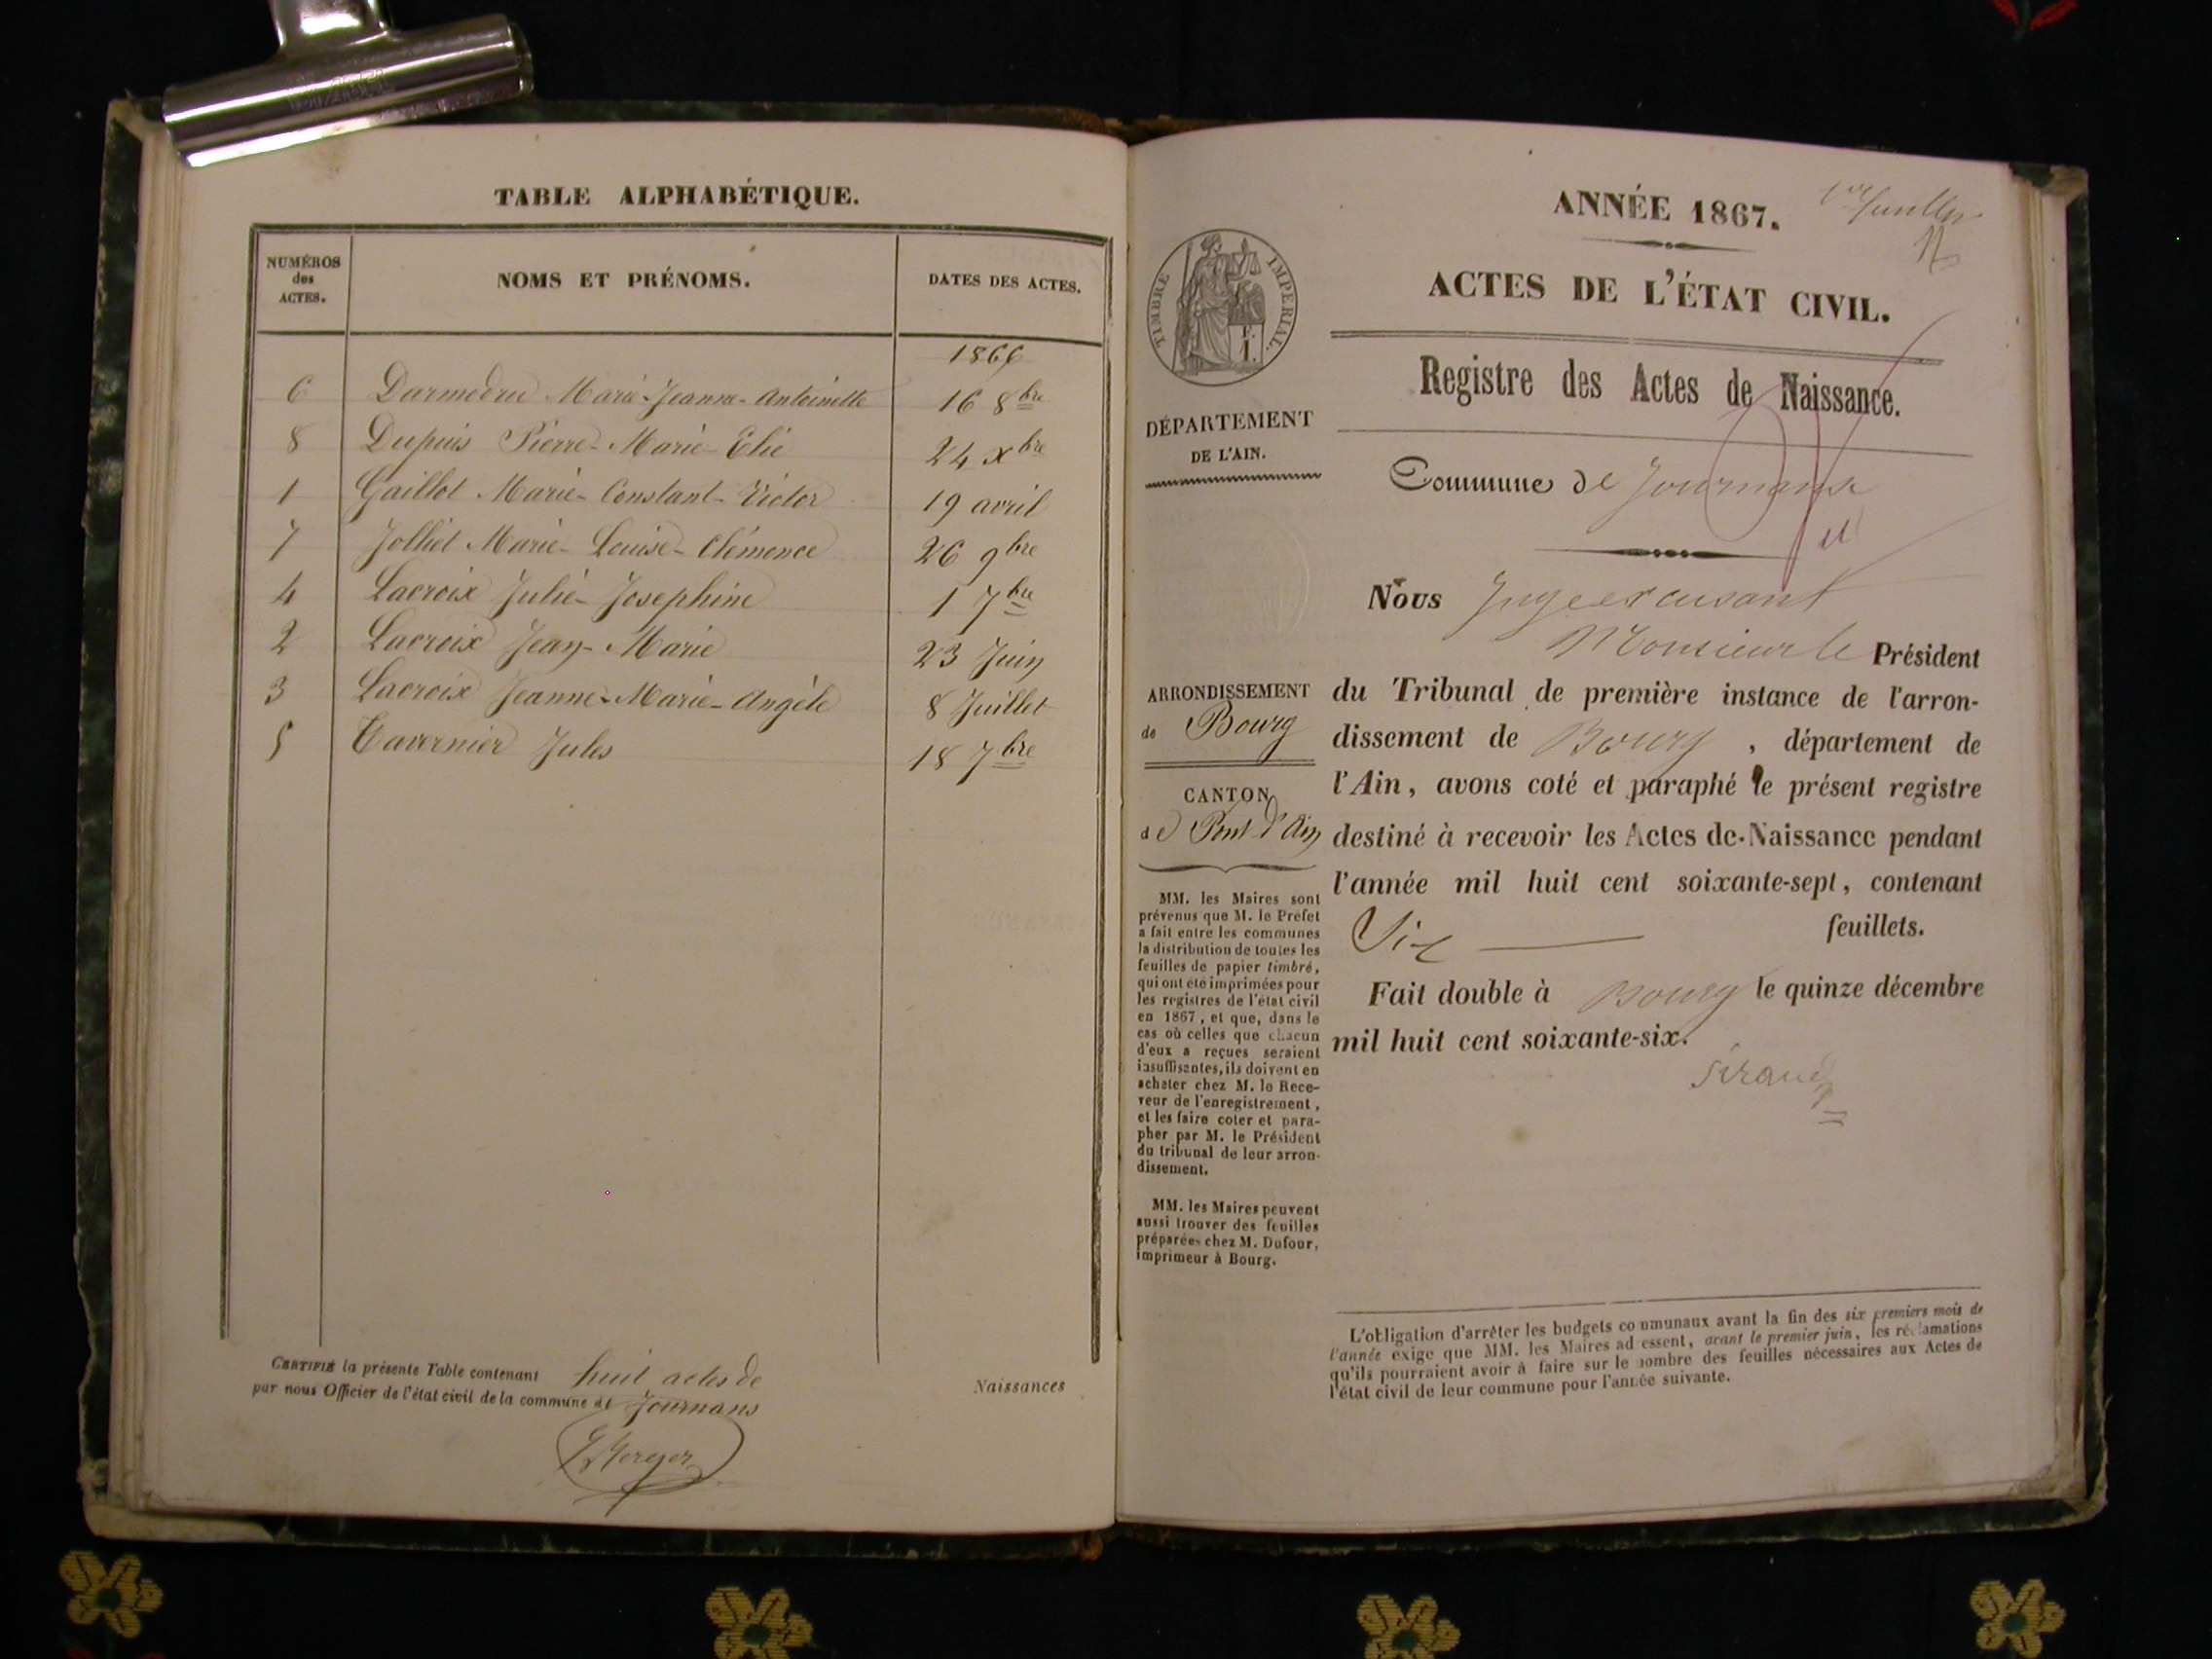 TABLE ALPHABÉTIQUE.
NUMÉROS
des
ACTES.
NOMS ET PRÉNOMS.
DATES DES ACTES.
1866
6 Darmedru Marie-Jeanne-Antoinette 16 8bre
8 Dupuis Pierre-Marie-Elie 24 xbre
1 Gaillot Marie-Constant-Victor 19 avril
7 Jolliet Marie-Louise-Clémence 26 9bre
4 Lacroix Julie-Josephine 1 7bre
2 Lacroix Jean-Marie 23 Juin
3 Lacroix Jeanne-Marie-Angèle 8 Juillet
5 Tavernier Jules 18 7bre
CERTIFIÉ la présente Table contenant huit actes de Naissances
par nous Officier de l'état civil de la commune de Journans
TIMBRE IMPERIAL.
DÉPARTEMENT
DE L'AIN.
ARRONDISSEMENT
de Bourg
CANTON
de Pont d'Ain
MM. les Maires sont
prévenus que M. le Préfet
a fait entre les communes
la distribution de toutes les
feuilles de papier timbré,
qui ont été imprimées pour
les registres de l'état civil
en 1867, et que, dans le
cas où celles que chacun
d'eux a reçues seraient
insuffisantes, ils doivent en
acheter chez M. le Rece-
veur de l'enregistrement,
et les faire coter et para-
pher par M. le Président
du tribunal de leur arron-
dissement.
MM. les Maires peuvent
aussi trouver des feuilles
préparées chez M. Dufour,
imprimeur à Bourg.
ANNÉE 1867.
ACTES DE L'ÉTAT CIVIL.
Registre des Actes de Naissance.
Commune de Journans
Nous Juge
Monsieur le Président
du Tribunal de première instance de l'arron-
dissement de Bourg, département de
l'Ain, avons coté et paraphé le présent registre
destiné à recevoir les Actes de Naissance pendant
l'année mil huit cent soixante-sept, contenant
Six feuillets.
Fait double à Bourg le quinze décembre
mil huit cent soixante-six.
L'obligation d'arrêter les budgets communaux avant la fin des six premiers mois de
l'année exige que MM. les Maires adressent, avant le premier juin, les réclamations
qu'ils pourraient avoir à faire sur le nombre des feuilles nécessaires aux Actes de
l'état civil de leur commune pour l'année suivante.